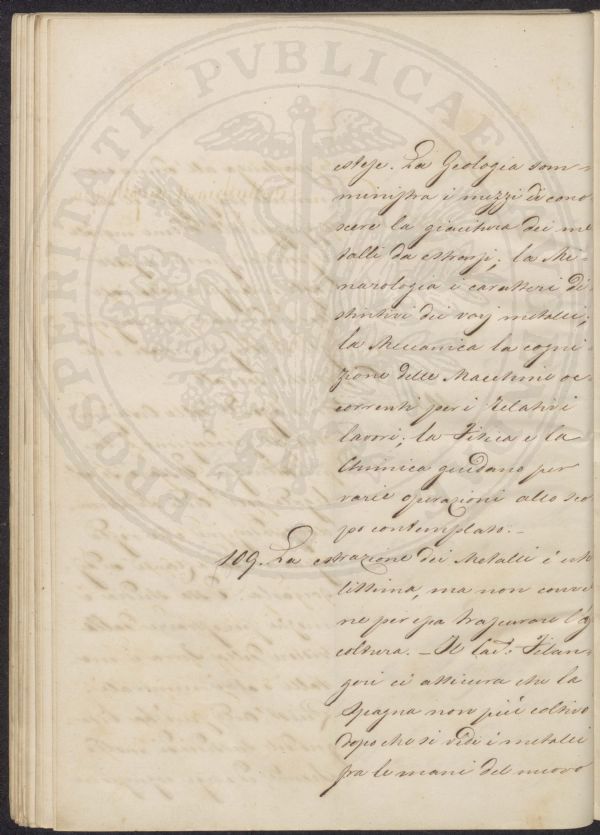 PROSPERITATI PVBLICAE
estese. La Geologia som=
ministra i mezzi di cono=
scere la giacitura dei me
talli da estrarsi; la Mi=
narologia i caratteri di
stintivi dei varj metalli;
la Meccanica la cogni
zione delle Macchine oc=
correnti per i relativi
lavori; la Fisica e la
Chimica guidano per
varie operazioni allo sco
po contemplato. _
109. La estrazione dei Metalli è uti
lissima, ma non convie
ne per essa trascurare l'a
coltura. _ Il Filan=
geri ci assicura che la
Spagna non più coltivò
dopo che si vidde i metalli
fra le mani del nuovo